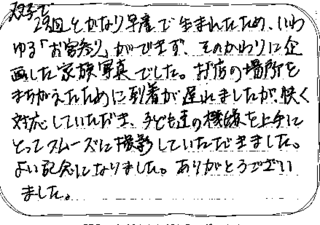 双子で
29週とかなり早産で生まれたため、いわ
ゆる「お宮参り」ができず、そのかわりに企
画した家族写真でした。お店の場所を
まちがえたために到着が遅れましたが、快く
対応していただき、子ども達の機嫌を上手に
とってスムーズに撮影していただきました。
よい記念になりました。ありがとうござい
ました。